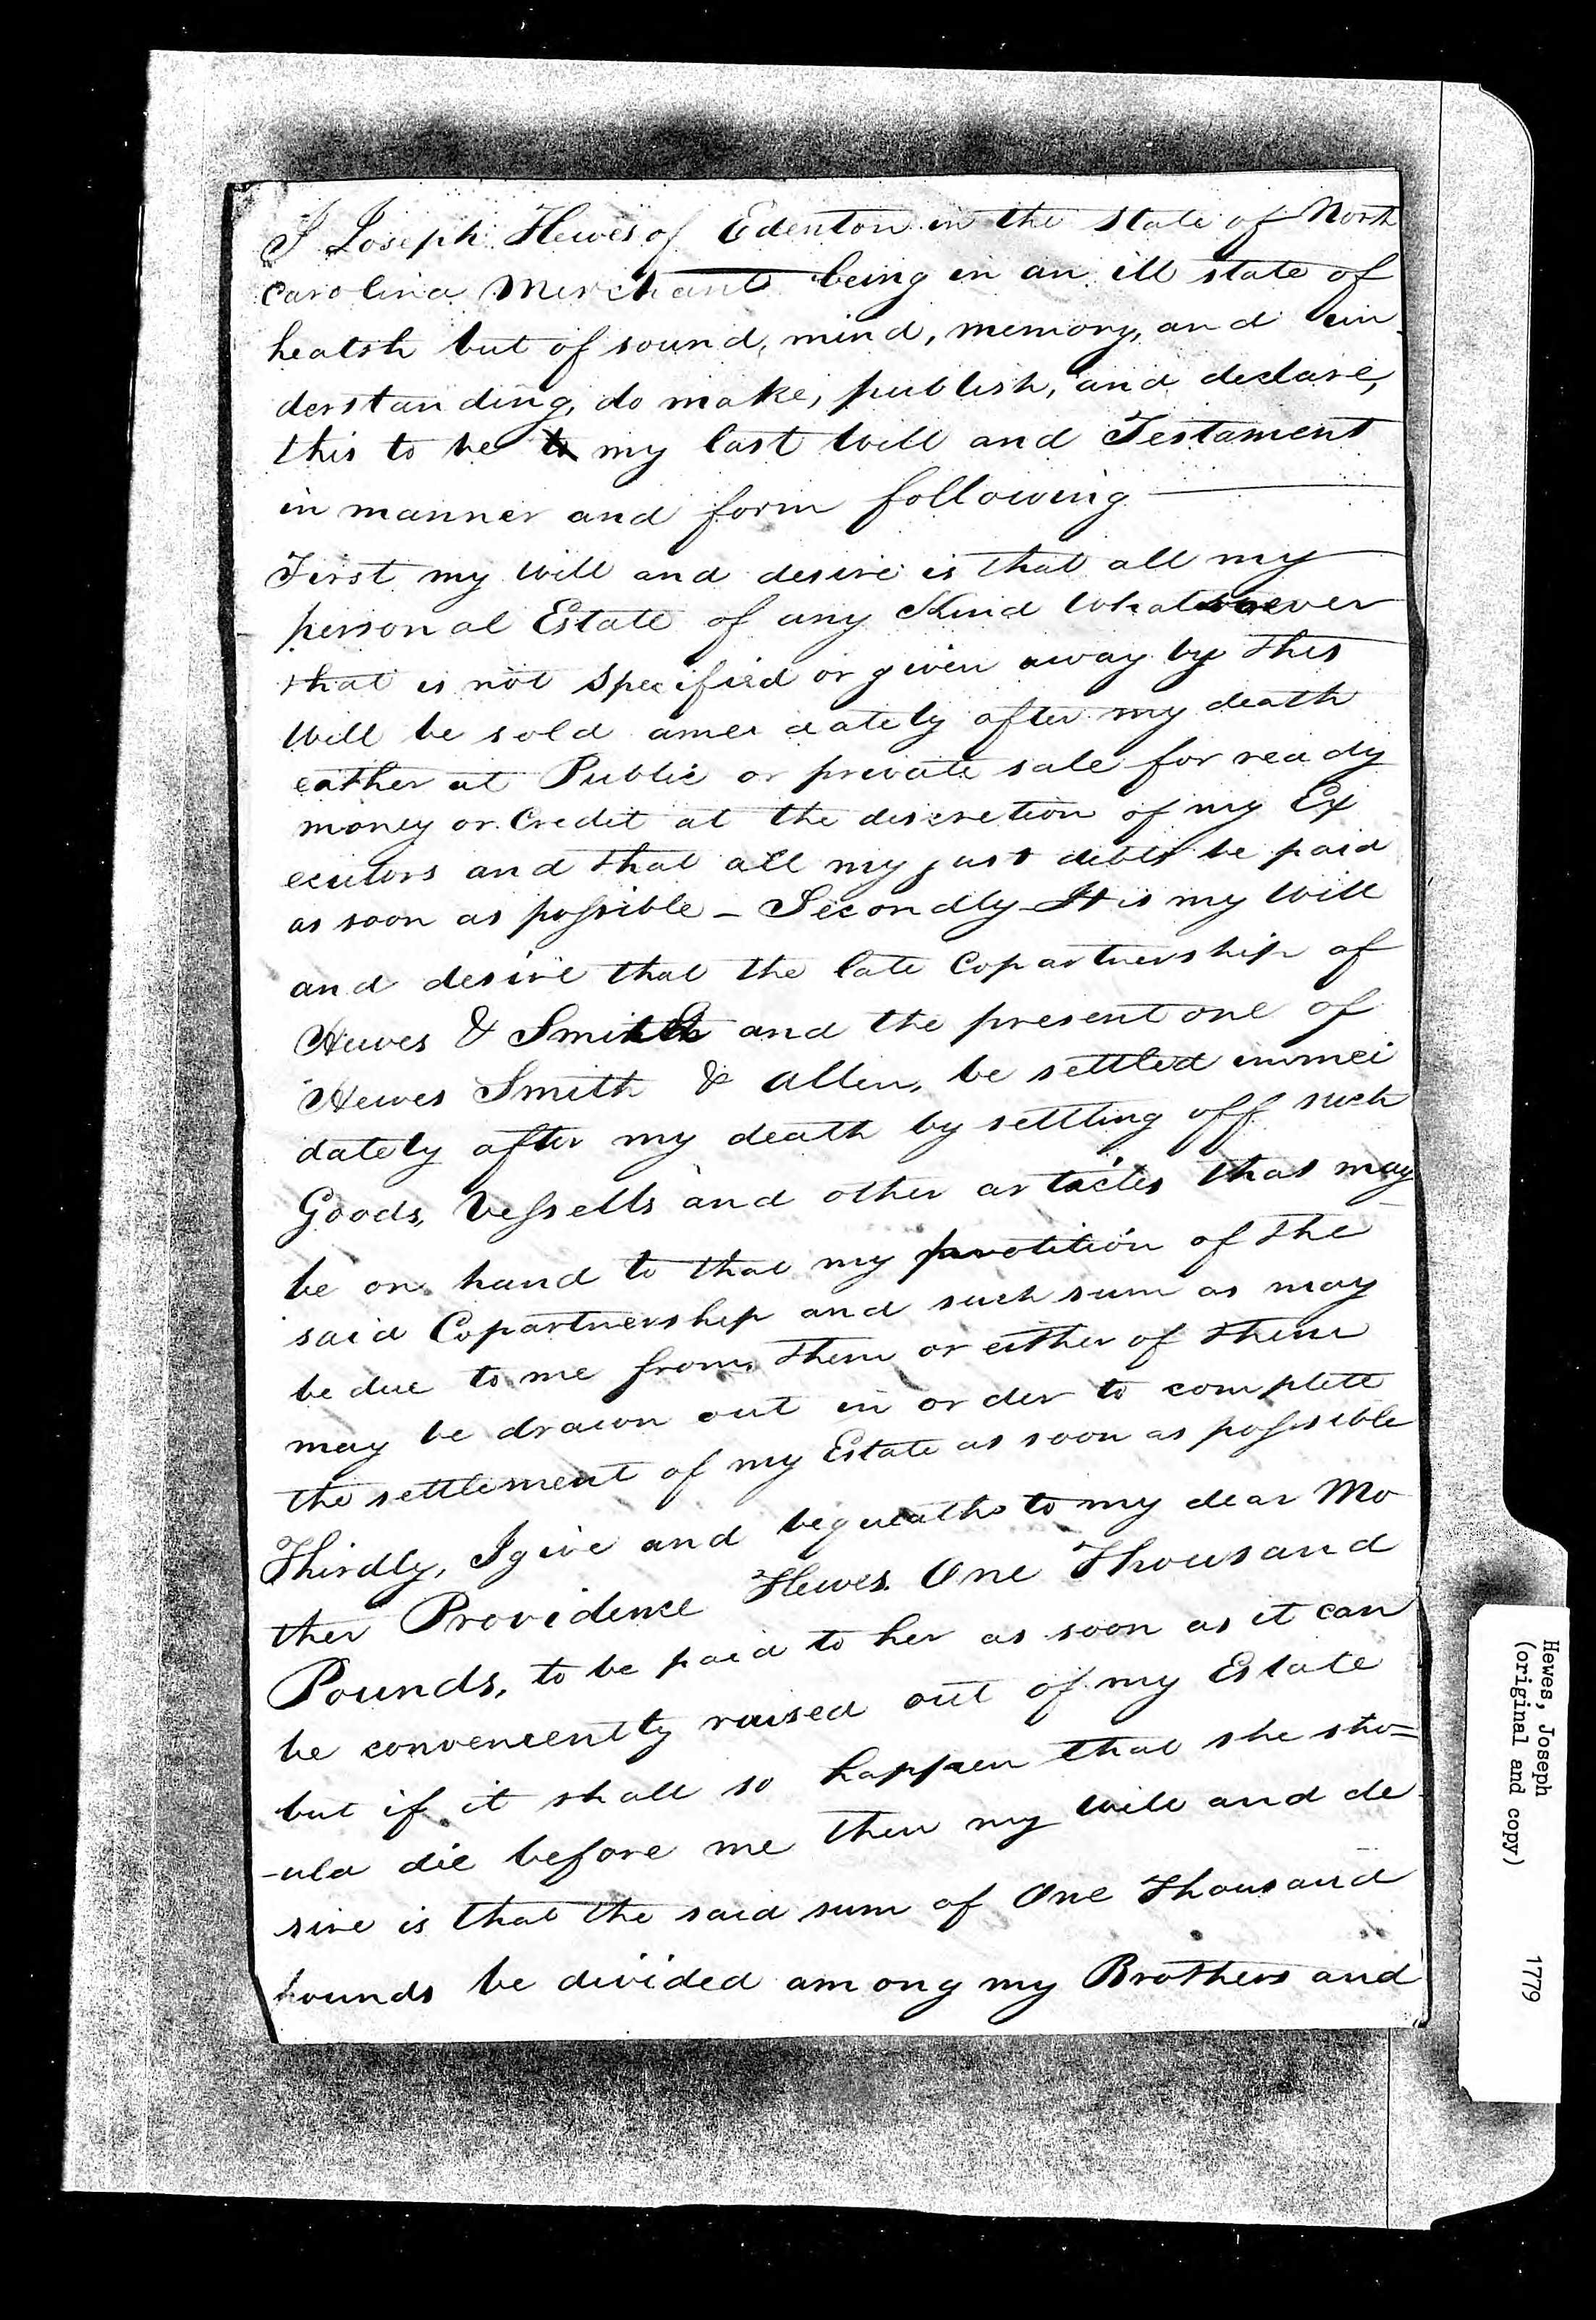 I Joseph Hewes of Edenton in the State of North
Carolina Merchant being in an ill state of
healsh but of sound, mind, memory, and un
derstanding, do make, publish, and declare,
this to be to my last Will and Testament
in manner and form following
First my will and desire is that all my
personal Estate of any Kind Whatsoever
that is not Specified or given away by this
Will be sold amei diately after my death
eather at Public or private sale for ready
money or Credit at the discretion of my Ex
ecutors and that all my just debts be paid
as soon as possible - Secondly It is my Will
and desire that the late Copartnership of
Hewes & Smith and the present one of
Hewes Smith & Allen, be settled immei
dately after my death by settling off such
Goods, Vessells and other articles that may
be on hand to that my protition of the
said Copartnership and such sum as may
be due to me from them or either of them
may be drawn out in order to complett
the settlement of my Estate as soon as possible
Thirdly, I give and bequeath to my dear Mo
ther Providence Hewes. One Thousand
Pounds, to be paid to her as soon as it can
be conveneently raised out of my Estate
but if it shall so happen that she sho=
-uld die before me then my will and de
sire is that the said sum of One Thousand
pounds be divided among my Brothers and
Hewes, Joseph 1779
(original and copy)